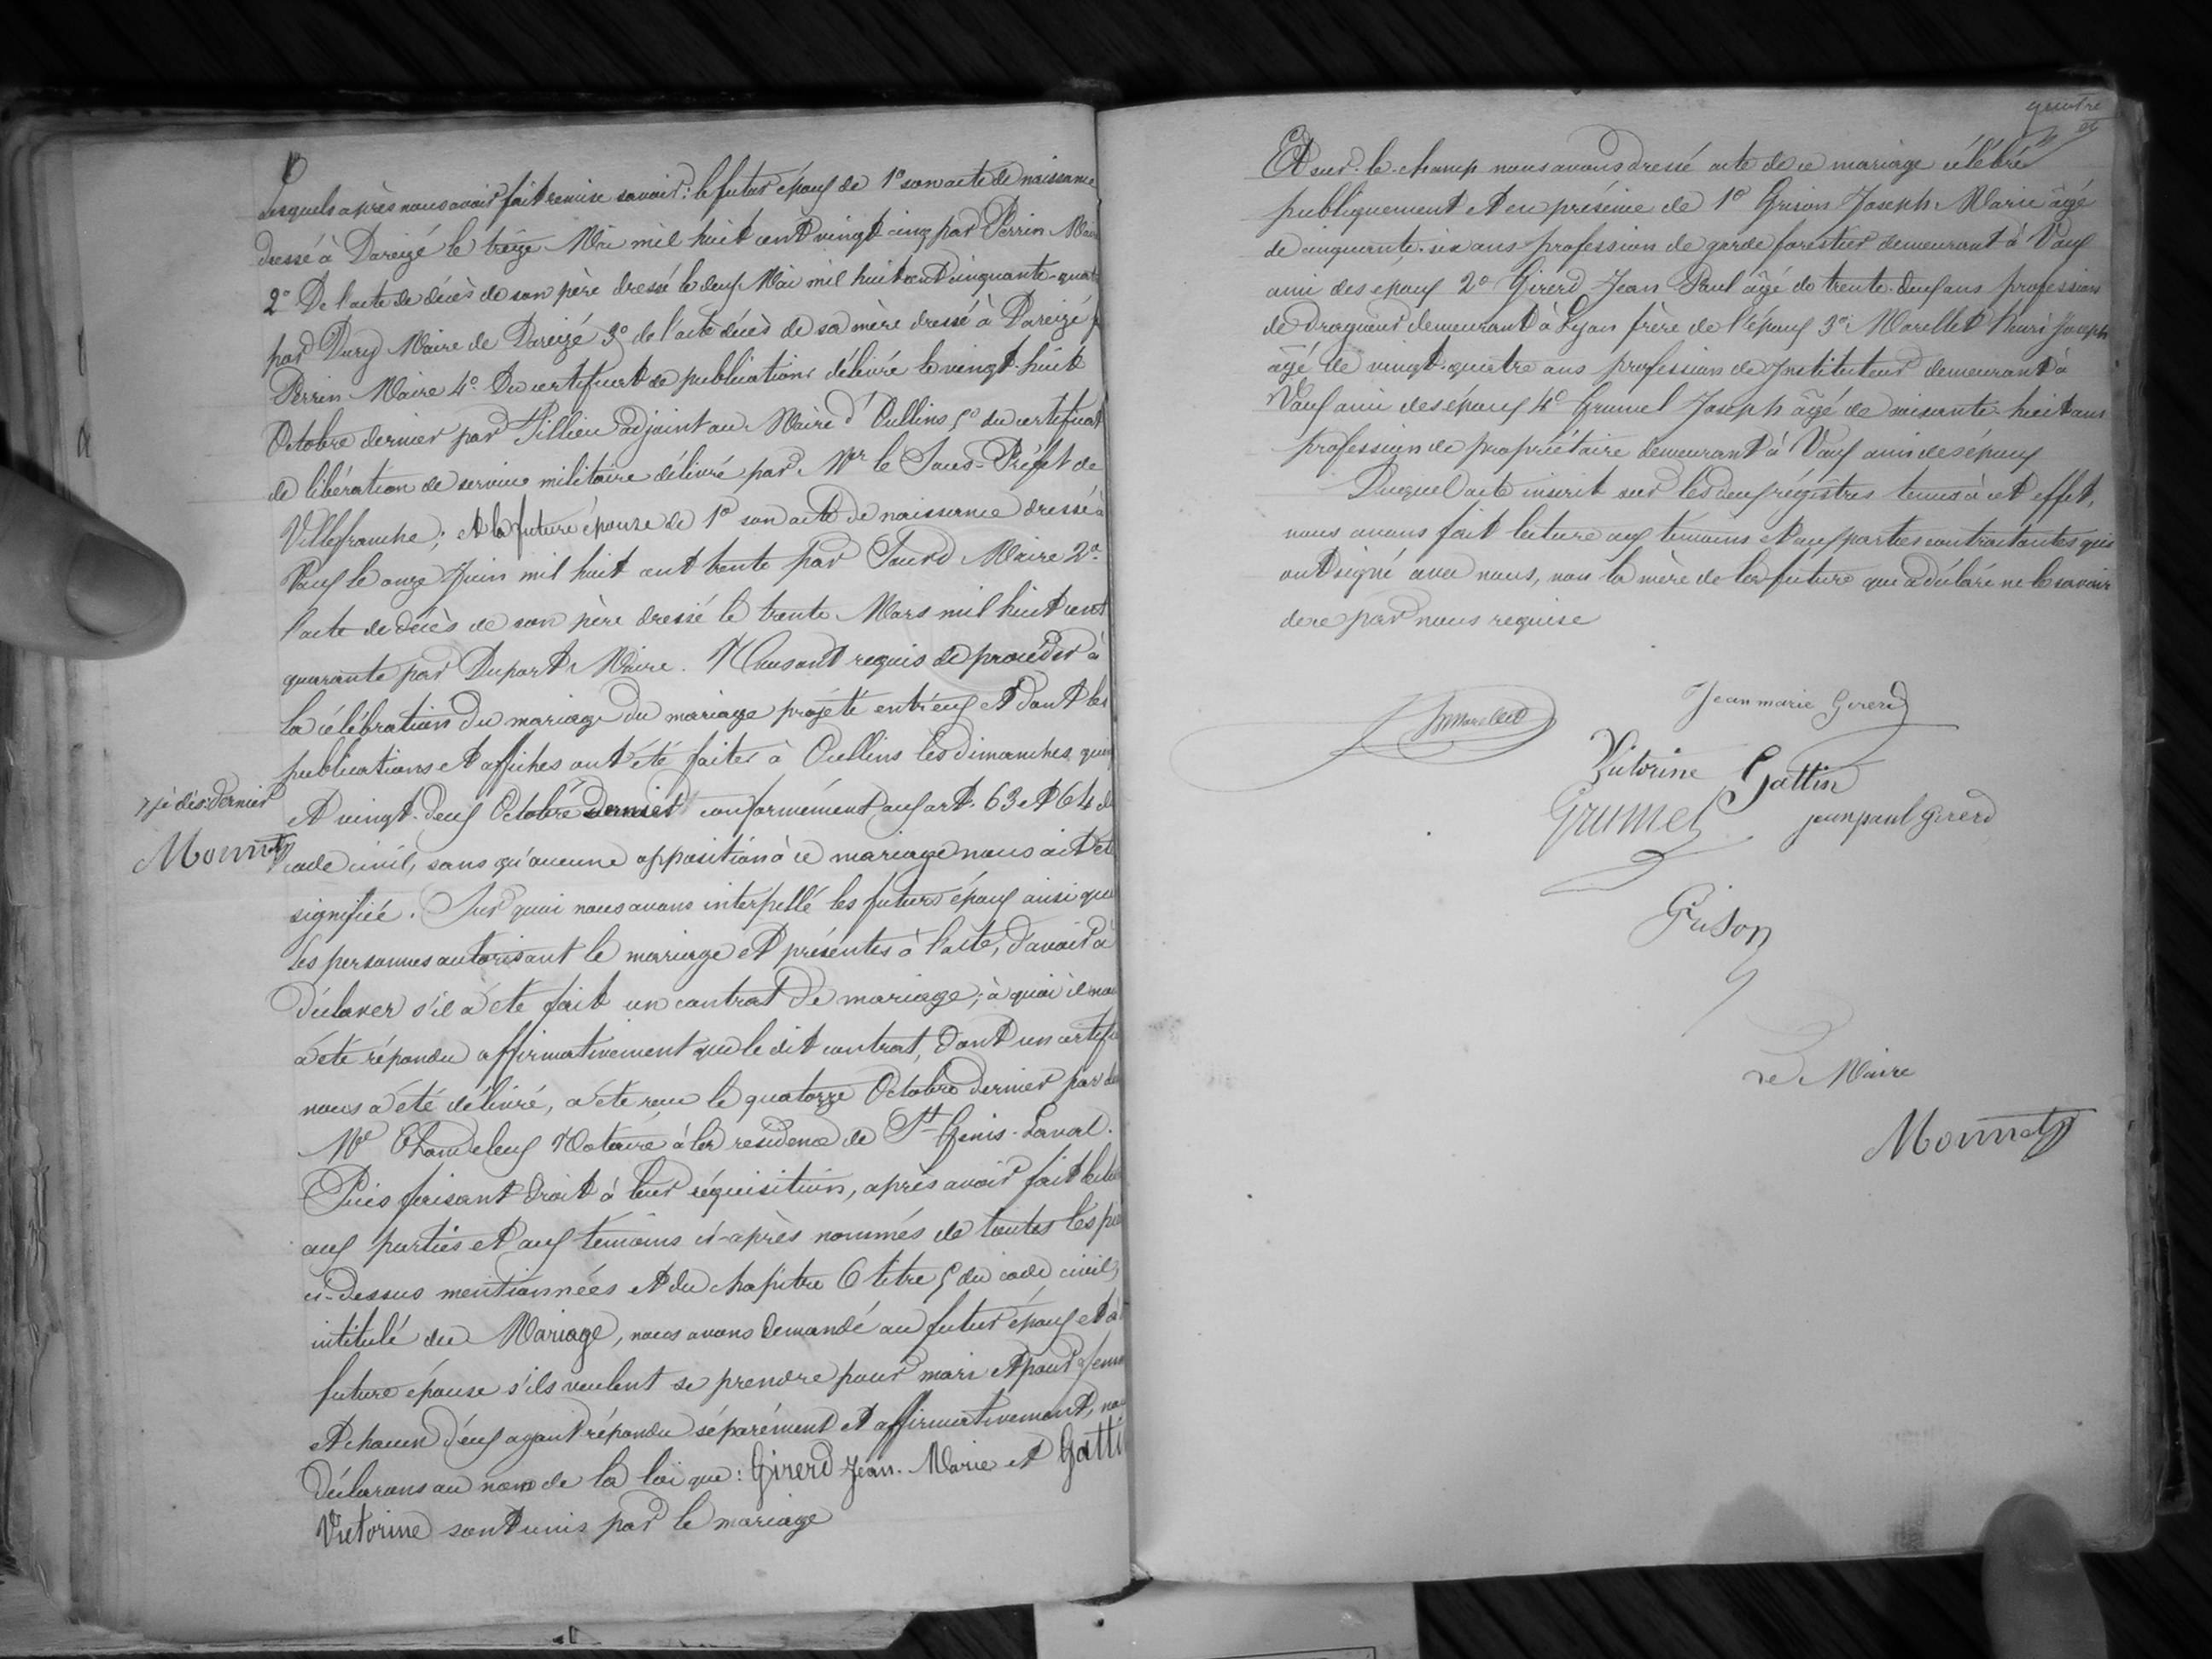 Lesquels après nous avoir fait remise savoir: le futur époux de 1º son acte de naissance
dressé à Dareizé le treize Mai mil huit cent vingt cinq par Perrin Maire
2º De l'acte de décès de son père dressé le deux Mai mil huit cent cinquante-quatre
par Dury Maire de Dareizé 3º de l'acte décès de sa mère dressé à Dareizé
Perrin Maire 4º Du certificat de publications délivré le vingt-huit
Octobre dernier par Pillieu adjoint au Maire d'Oullins 5º du certificat
de libération de service militaire délivré par Mr le Sous-Préfet de
Villefranche; et la future épouse de 1º son acte de naissance dressé à
Vaux le onze Juin mil huit cent trente par Sourd Maire 2º
l'acte de décès de son père dressé le trente Mars mil huit cent
quarante par Duport Maire. Nous ont requis de procéder à
la célébration du mariage du mariage projeté entr'eux et dont les
publications et affiches ont été faites à Oullins les dimanches
et vingt-deux Octobre dernier conformément aux art. 63 et 64 du
code civil, sans qu'aucune opposition à ce mariage nous ait été
signifiée. Sur quoi nous avons interpellé les futurs époux ainsi que
les personnes autorisant le mariage et présentes à l'acte, d'avoir à
déclarer s'il a été fait un contrat de mariage; à quoi il nous
a été répondu affirmativement que le dit contrat, dont un certific
nous a été délivré, a été reçu le quatorze Octobre dernier par
Me Chandeleux Notaire à la residence de St-Genis-Laval.
Puis faisant droit à leur réquisition, après avoir fait lecture
aux parties et aux témoins ci-après nommés de toutes les
ci-dessus mentionnées et du chapitre 6 titre 5 du code civil,
intitulé du Mariage, nous avons demandé au futur époux et à
future épouse s'ils veulent se prendre pour mari et pour femme
et chacun d'eux ayant répondu séparément et affirmativement, nous
déclarons au nom de la loi que: Girerd Jean-Marie et Gatti
Victorine sont unis par le mariage
dernier
Monnet
quatre
Et sur-le-champ nous avons dressé acte de ce mariage célébré
publiquement et en présence de 1º Grison Joseph-Marie âgé
de cinquante-six ans profession de garde forestier demeurant à Vaux
ami des époux 2º Girerd Jean Paul âgé de trente-deux ans profession
de Dragueur demeurant à Lyon frère de l'époux 3º Morellet Henri Joseph
âgé de vingt-quatre ans profession de Instituteur demeurant à
Vaux ami des époux 4º Grumel Joseph âgé de soixante-huit ans
profession de propriétaire demeurant à Vaux ami des époux
Duquel acte inscrit sur les deux régistres tenus à cet effet,
nous avons fait lecture aux témoins et aux parties contractantes qui
ont signé avec nous, non la mère de la future que a déclaré ne le savoir
de ce par nous requise
Jean marie Girerd
Morellet
Victorine Gattin
Grumel jean paul girerd
Grison
Le Maire
Monnet